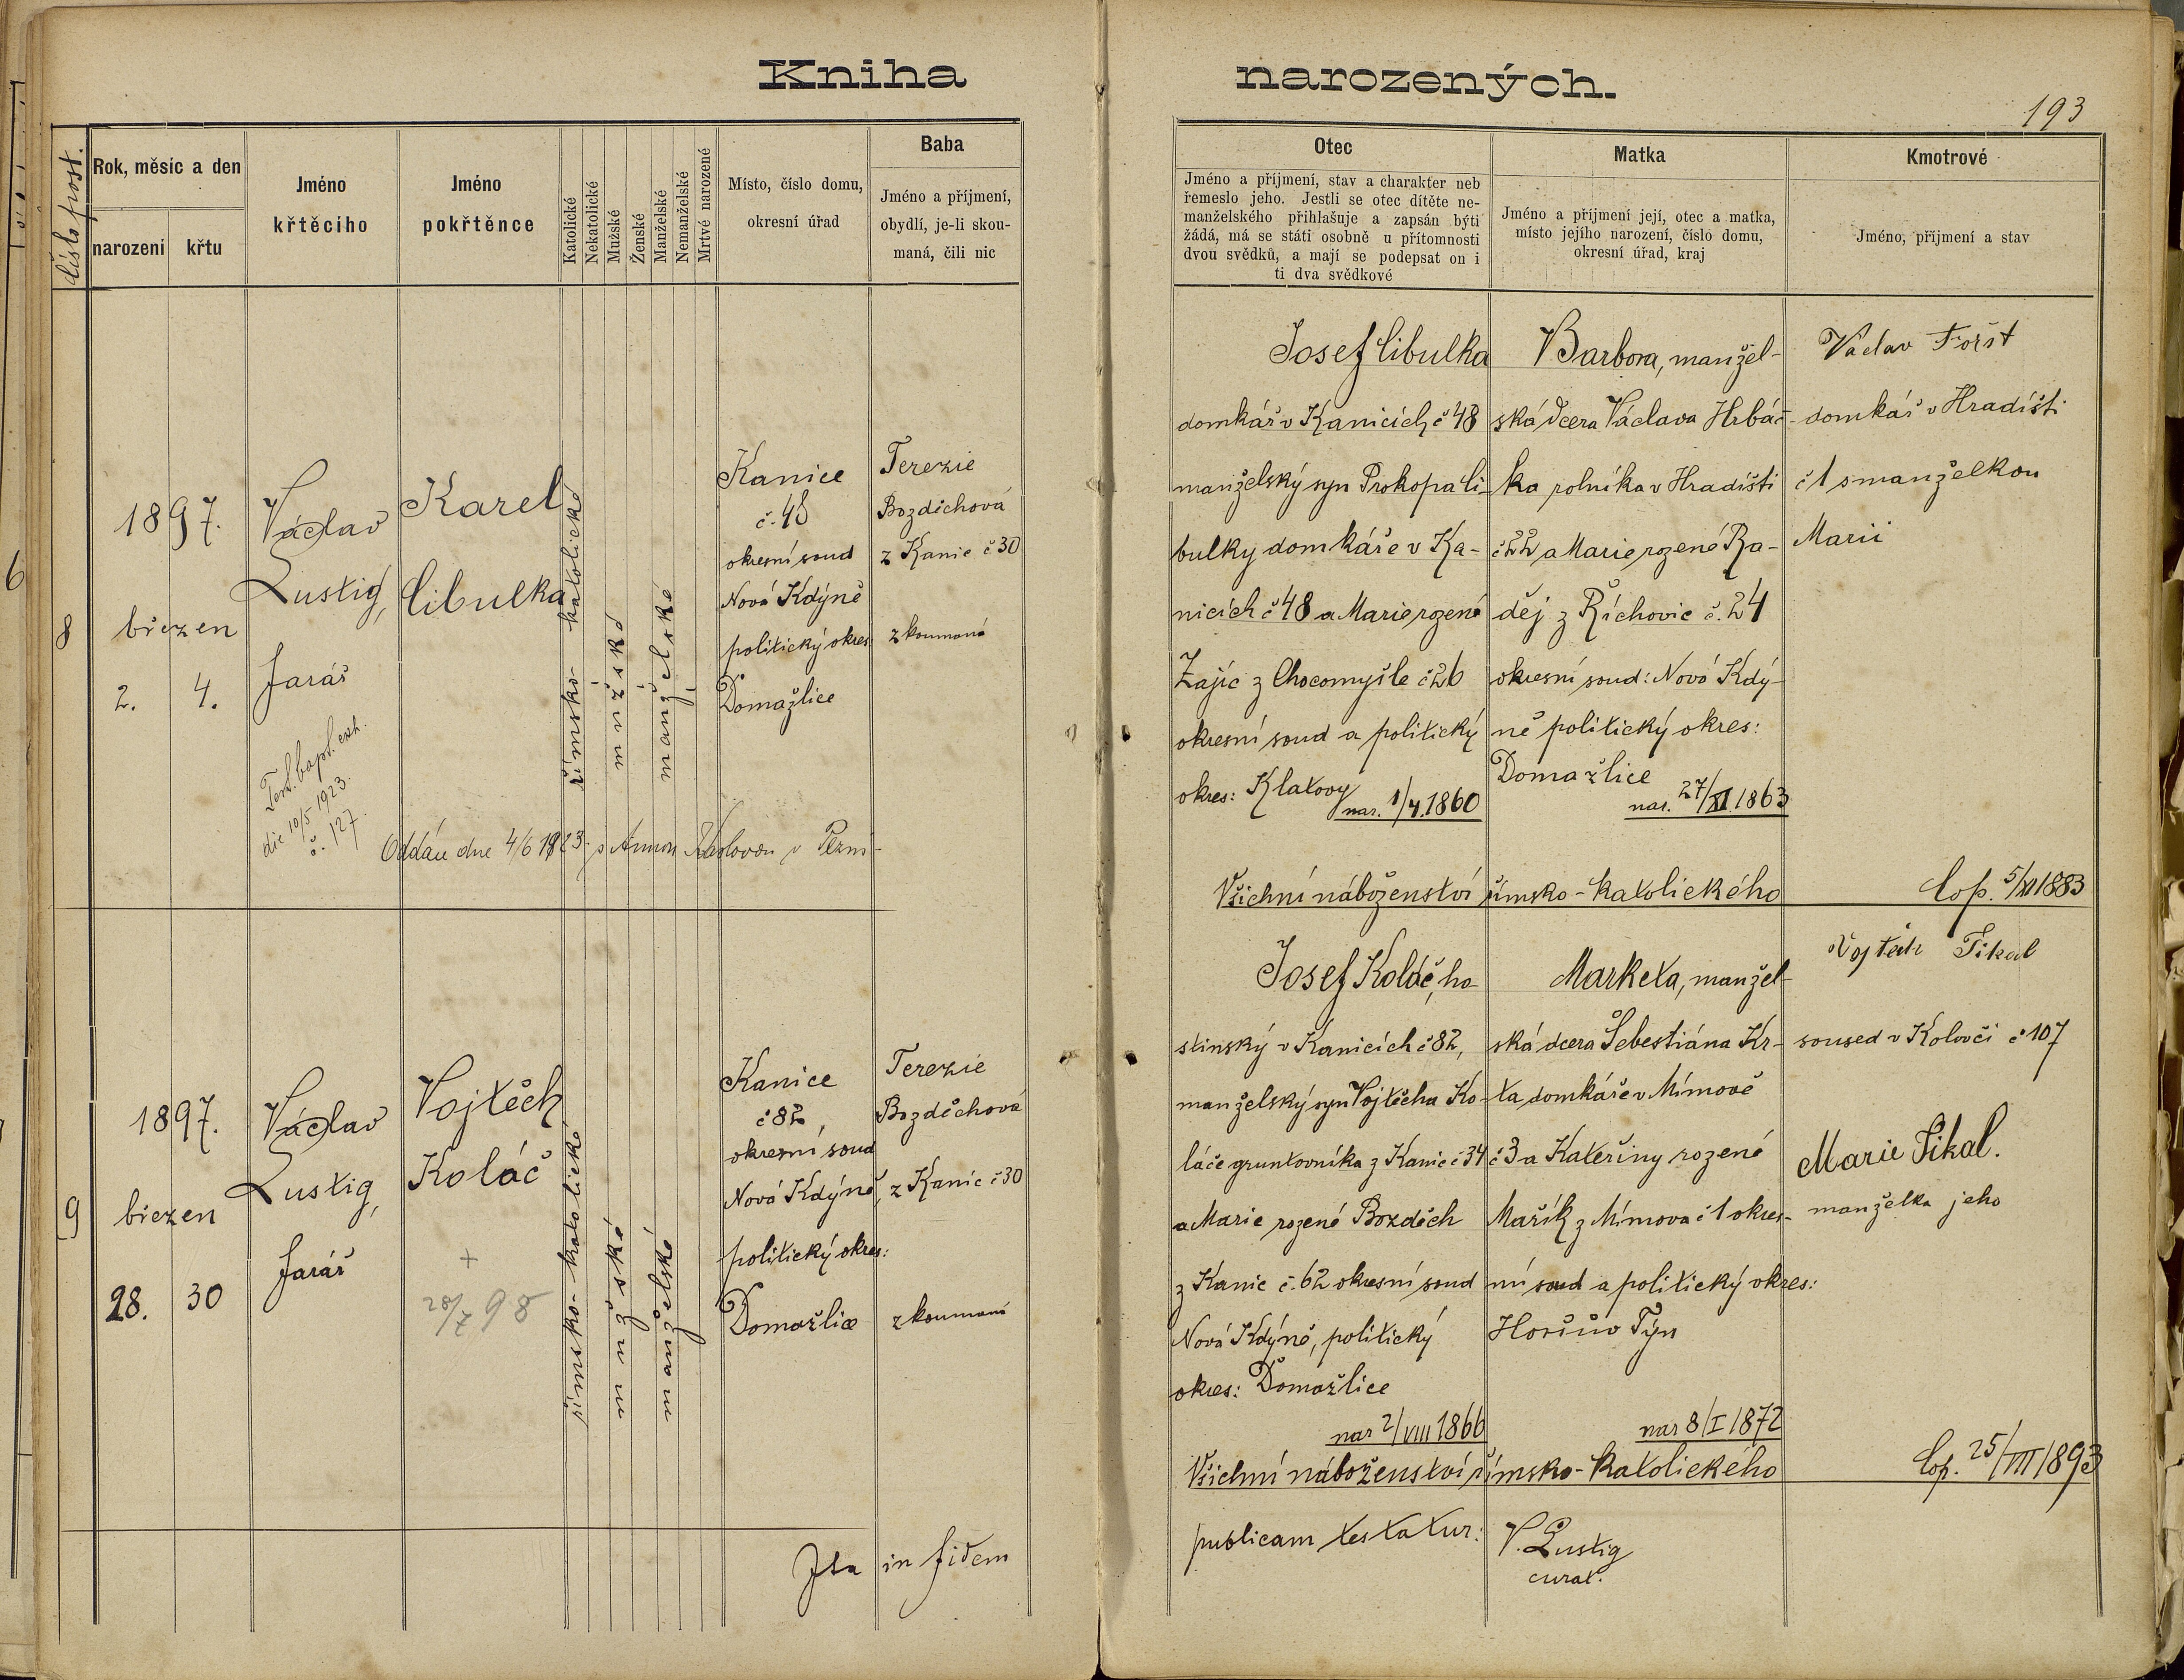 Kniha narozených.
193
číslo post.
Rok, měsíc a den
narození
křtu
Jméno
křtěcího
Jméno
pokřtěnce
Katolické
Nekatolické
Mužské
Ženské
Manželské
Nemanželské
Mrtvé narozené
Místo, číslo domu,
okresní úřad
Baba
Jméno a příjmení,
obydlí, je-li skou-
maná, čili nic
Otec
Jméno a příjmení, stav a charakter neb
řemeslo jeho. Jestli se otec dítěte ne-
manželského přihlašuje a zapsán býti
žádá, má se státi osobně u přítomnosti
dvou svědků, a mají se podepsat on i
ti dva svědkové
Matka
Jméno a příjmení její, otec a matka,
místo jejího narození, číslo domu,
okresní úřad, kraj
Kmotrové
Jméno, příjmení a stav
8
1897.
březen
2. 4.
Václav
Lustig,
farář
Test. bapt. exh.
die 10/5 1923.
č. 127.
Karel
Cibulka
římsko-katolické
mužské
manželské
Kanice
č. 48
okresní soud
Nová Kdýně
politický okres
Domažlice
Terezie
Bozděchová
z Kanic č 30
zkoumaná
Oddán dne 4/6 1923 s Annou
Josef Cibulka
domkář v Kanicích č 48
manželský syn Prokopa Ci-
bulky domkáře v Ka-
nicích č 48 a Marie rozené
Zajíc z Chocomyšle č 26
okresní soud a politický
okres: Klatovy
nar. 1/4. 1860
Barbora, manžel-
ská dcera Václava Hrbáč-
ka rolníka v Hradišti
č 22 a Marie rozené Ra-
děj z Říchovic č. 24
okresní soud: Nová Kdý-
ně politický okres:
Domažlice
nar. 27/XI 1863
Václav Fořt
domkář v Hradišti
č 1 s manželkou
Marií
Všichni náboženství římsko-katolického
Cop. 5/XI 1883
9
1897.
březen
28. 30
Václav
Lustig,
farář
Vojtěch
Koláč
+
28/7 98
římsko-katolické
mužské
manželské
Kanice
č 82
okresní soud
Nová Kdýně,
politický okres:
Domažlice
Terezie
Bozděchová
z Kanic č 30
zkoumaná
Josef Koláč, ho-
stinský v Kanicích č 82,
manželský syn Vojtěcha Ko-
láče gruntovníka z Kanic č 34
a Marie rozené Bozděch
z Kanic č. 62 okresní soud
Nová Kdýně, politický
okres: Domažlice
nar 2/VIII 1866
Marketa, manžel-
ská dcera Šebestiána Kr-
ta domkáře v Mímově
č 3 a Kateřiny rozené
Mařík z Mímova č 1 okres-
ní soud a politický okres:
Horšův Týn
nar 8/I 1872
Vojtěch Sikal
soused v Kolovči č 107
Marie Sikal.
manželka jeho
Všichni náboženství římsko-katolického
Cop. 25/VII 1893
Ita in fidem publicam testatur: V. Lustig
curat.